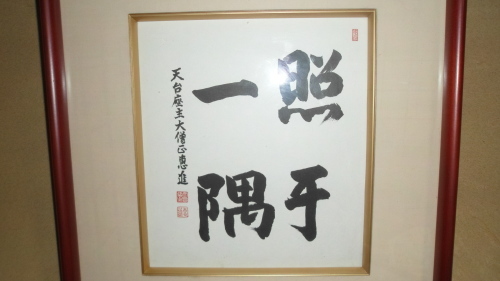 照于
一隅
天台座主大僧正惠進